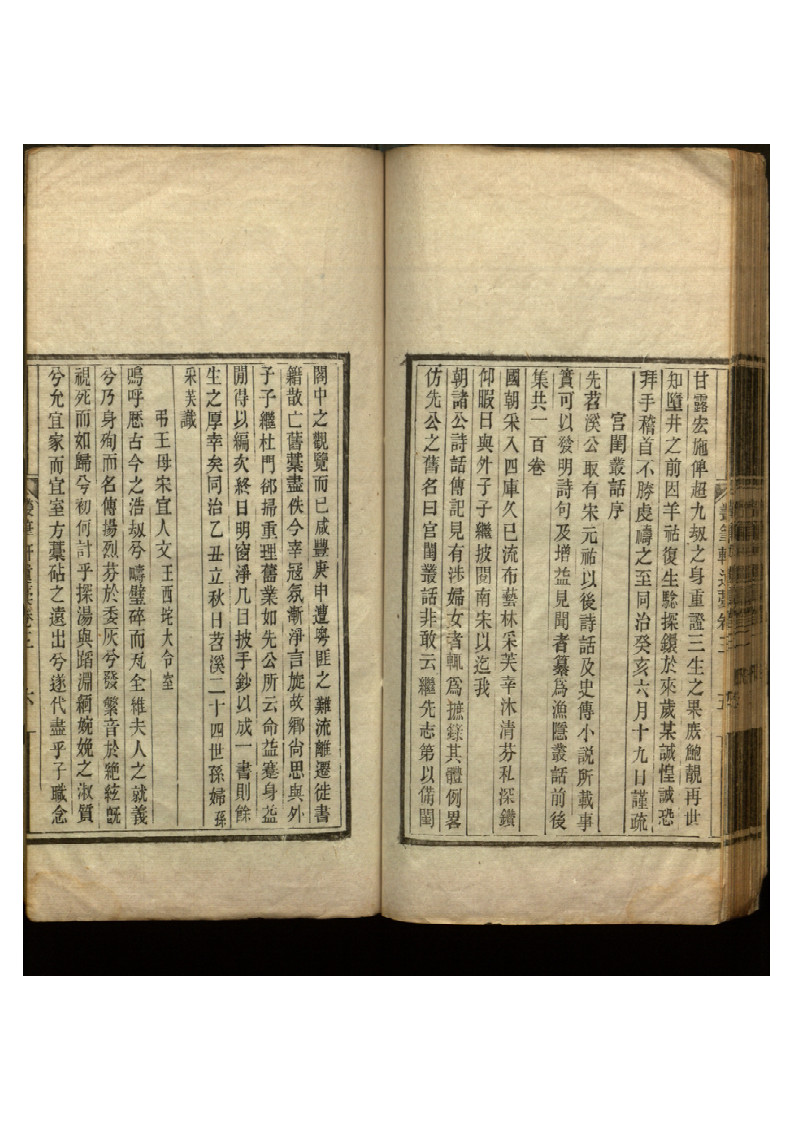 甘露宏施俾超九劫之身重證三生之果庶鮑靚再世
知墮井之前因羊祜復生驗探鐶於來歲某誠惶誠恐
拜手稽首不勝虔禱之至同治癸亥六月十九日謹疏
宮閨叢話序
先苕溪公取有宋元祐以後詩話及史傳小說所載事
實可以發明詩句及增益見聞者纂爲漁隱叢話前後
集共一百卷
國朝采入四庫久已流布藝林采芙幸沐清芬私深鑽
仰暇日與外子子繼披閱南宋以迄我
朝諸公詩話傳記見有涉婦女者輒爲摭錄其體例畧
仿先公之舊名曰宮閨叢話非敢云繼先志第以備閨
閣中之觀覽而已咸豐庚申遭粵匪之難流離遷徙書
籍散亡舊藁盡佚今幸寇氛漸淨言旋故鄉尙思與外
子子繼杜門卻掃重理舊業如先公所云命益蹇身益
閒得以編次終日明窗淨几日披手鈔以成一書則餘
生之厚幸矣同治乙丑立秋日苕溪二十四世孫婦孫
采芙識
弔王母宋宜人文 王西垞大令室
嗚呼歷古今之浩劫兮疇璧碎而瓦全維夫人之就義
兮乃身殉而名傳揚烈芬於委灰兮發繁音於絶絃旣
視死而如歸兮初何計乎探湯與蹈淵緬婉娩之淑質
兮允宜家而宜室方藁砧之遠出兮遂代盡乎子職念